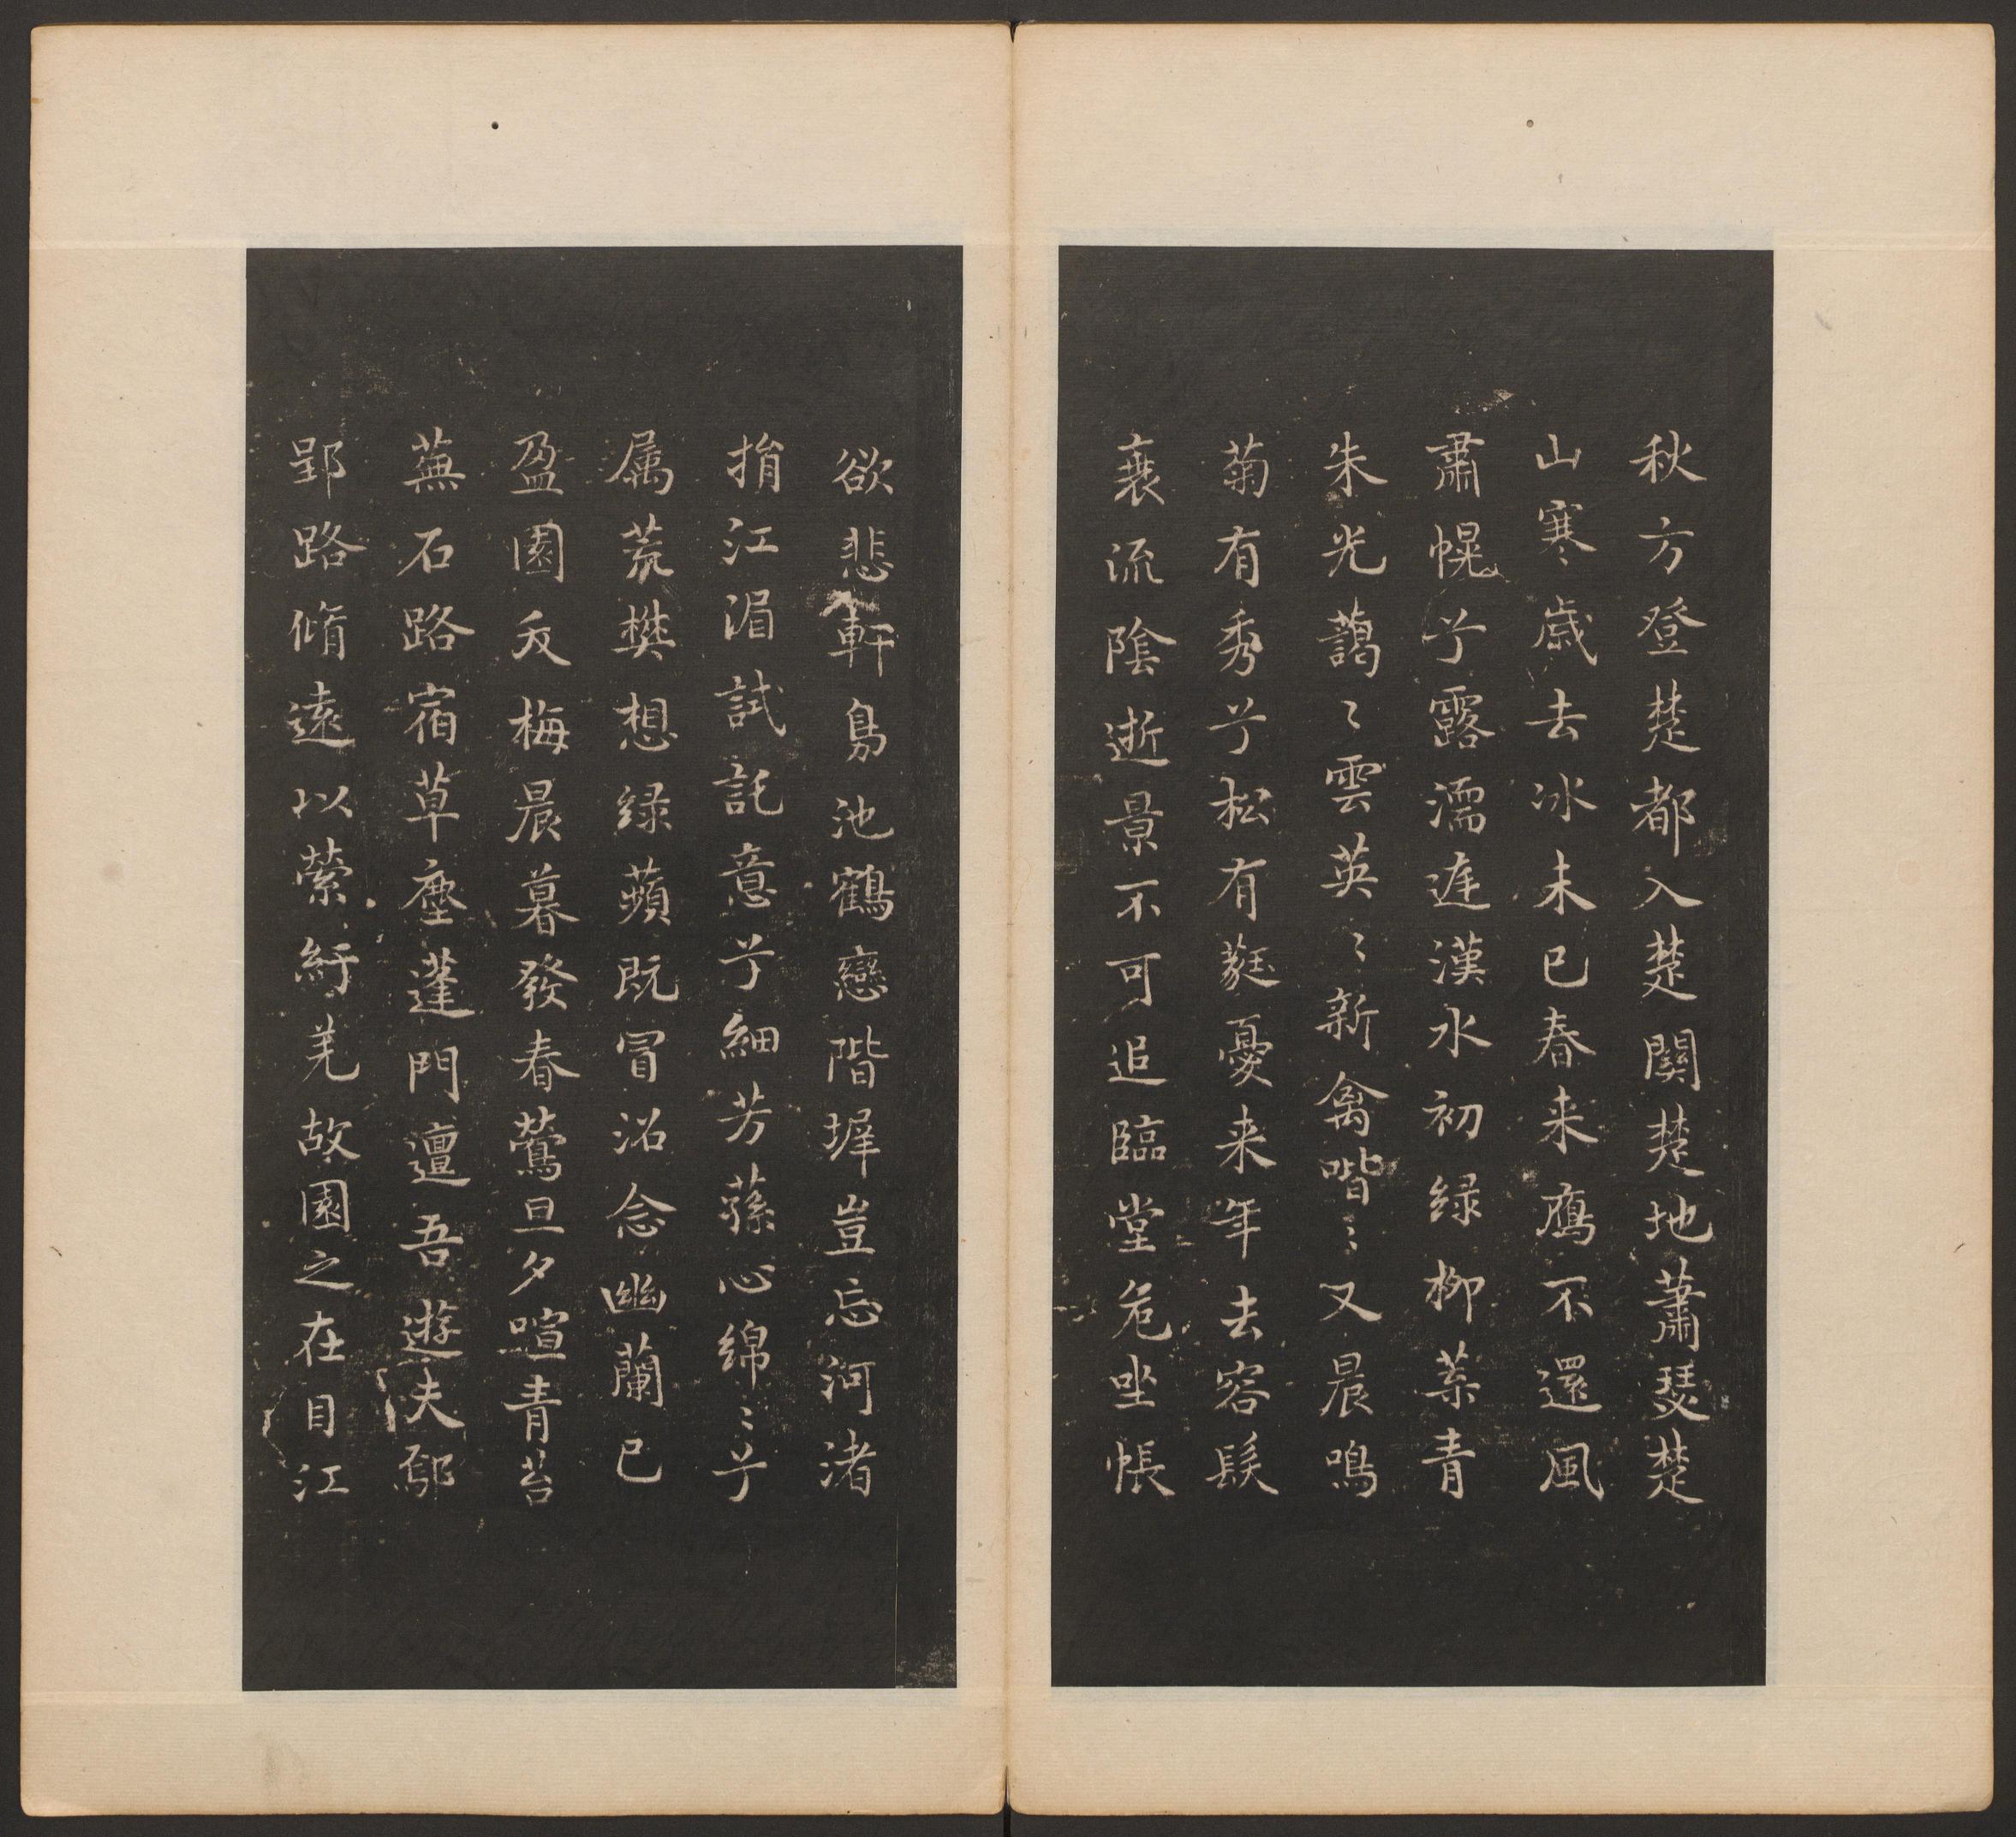 秋方登楚都入楚關楚地蕭瑟楚
山寒歲去冰未已春来鴈不還風
肅幌兮露濡庭漢水初緑柳葉青
朱光藹〻雲英〻新禽喈〻又晨鳴
菊有秀兮松有蕤憂来年去容髮
衰流陰逝景不可追臨堂危坐帳
欲悲軒鳧池鶴戀階墀豈忘河渚
捐江湄試託意兮細芳蓀心綿〻兮
属荒樊想緑蘋既冒沼念幽蘭已
盈園夭梅晨暮發春鶯旦夕喧青苔
蕪石路宿草塵蓬門邅吾遊夫鄢
郢路脩遠以縈紆羌故園之在目江